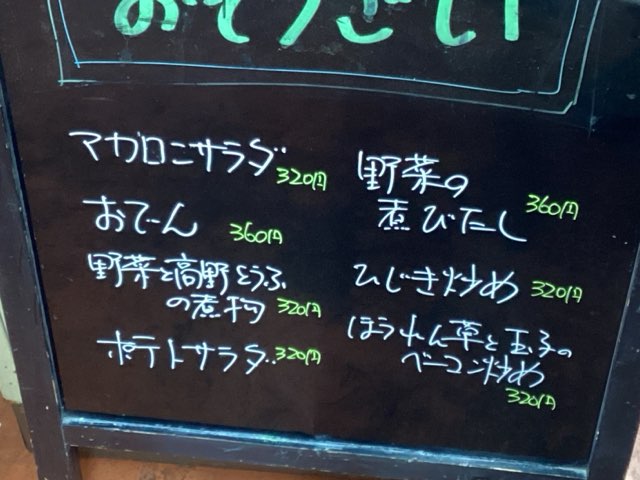 おそうざい
マカロニサラダ 320円
おでーん 360円
野菜と高野とうふ
の煮物 320円
ポテトサラダ 320円
野菜の
煮びたし 360円
ひじき炒め 320円
ほうれん草と玉子の
ベーコン炒め
320円